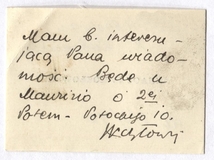 Mam b. interesu-
jącą Pana wiado-
mość. Będę u
Maurizio o 2ej
Potem - Potockiego 10.